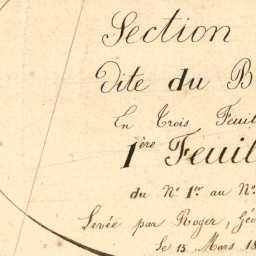 Section
Dite du B
En Trois Feuil
1ère Feuil
du N° 1er au N°
Levée par Roger, Géo
Le 15 Mars 18